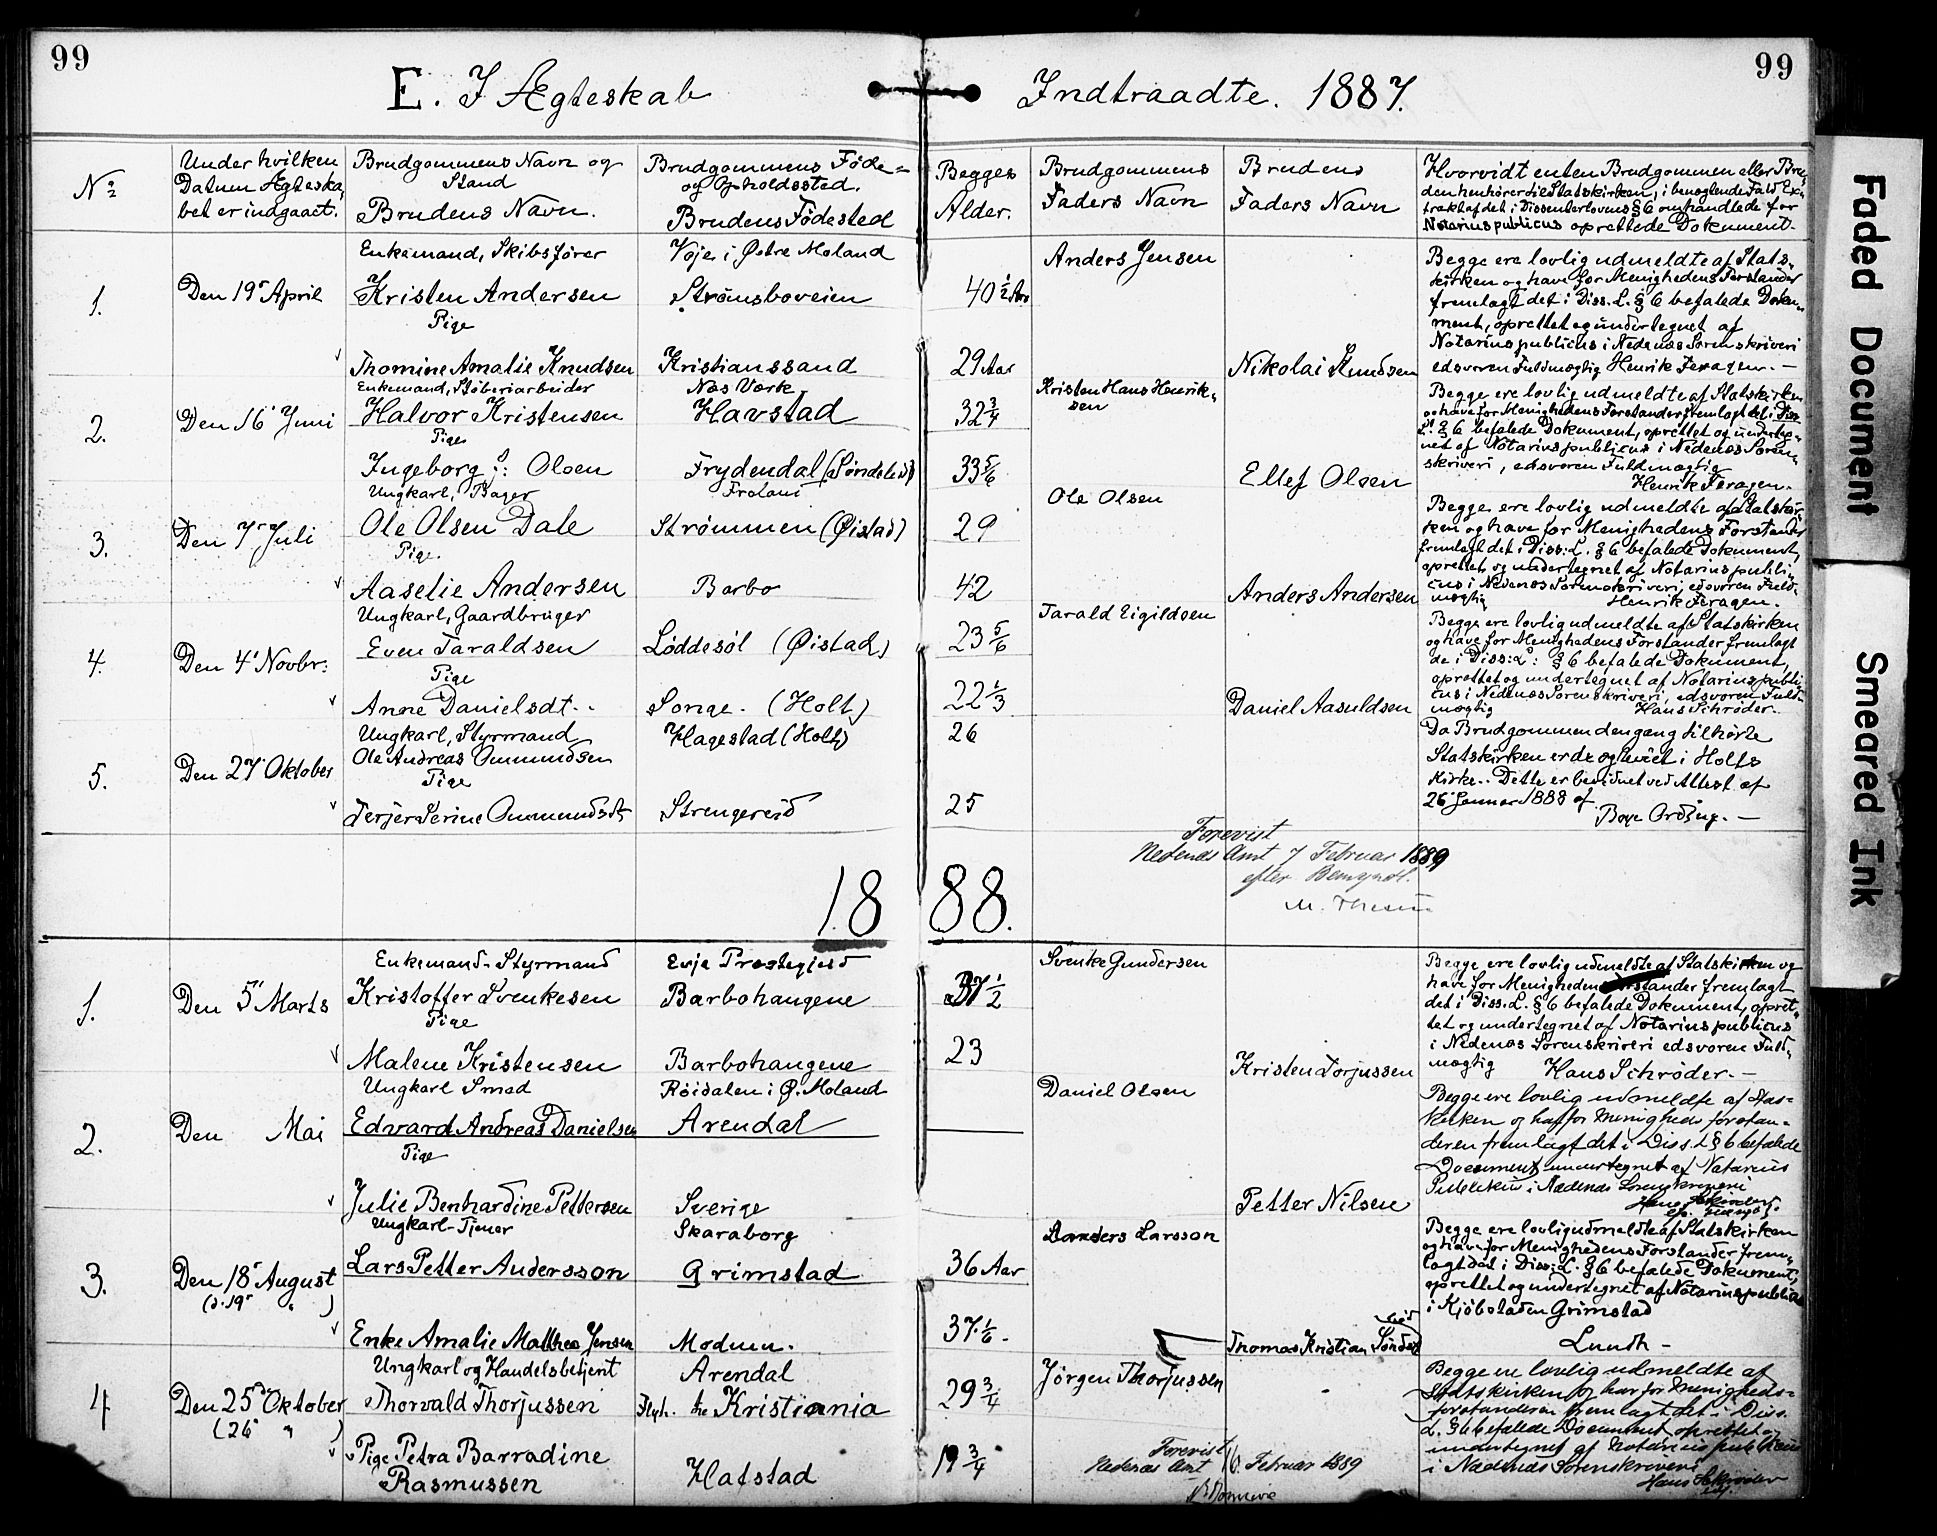 99
99
E. I Ægteskab Indtraadte. 1887.
No
Under hvilken
Datum Ægteska,
bet er indgaaet.
Brudgommens Navn og
Stand
Brudens Navn.
Brudgommens Føde-
og Opholdssted.
Brudens Fødested
Begges
Alder.
Brudgommens
Faders Navn
Brudens
Faders Navn
Hvorvidt enten Brudgommen eller Bru-
den henhører til Statskirken, i benægtende Fald Ex-
trakt af det i Dissenterlovens § 6 omhandlede for
Notarius publicus oprettede Dokument.
1.
Den 19' April
Enkemand, Skibsfører
Kristen Andersen
Pige
Thomine Amalie Knudsen
Vøje i Østre Moland
Strømsboveien
Kristianssand
40 1/2 Aar
29 Aar
Anders Jensen
Nikolai Knudsen
Begge ere lovlig udmeldte af Stats-
kirken og have for Menighedens Forstander
fremlagt det i Diss. L. § 6 befalede Doku-
ment, oprettet og undertegnet af
Notarius publicus i Nedenæs Sorenskriveri
edsvoren Fuldmægtig Henrik Feragen. —
2.
Den 16' Juni
Enkemand, Støberiarbeider
Halvor Kristensen
Pige
Ingeborg Olsen
Næs Værk
Havstad
Frydendal (Søndeled)
32 3/4
33 5/6
Kristen Hans Henrik-
sen
Ellef Olsen
Begge ere lovlig udmeldte af Statskirken
og have for Menighedens Forstander fremlagt det i Diss
L. § 6 befalede Dokument, oprettet og underteg-
net af Notarius publicus i Nedenæs Soren-
skriveri, edsvoren Fuldmægtig
Henrik Feragen.
3.
Den 7' Juli
Ungkarl, Bager
Ole Olsen Dale
Pige.
Aaselie Andersen
Froland
Strømmen (Øistad)
Barbo
29
42
Ole Olsen
Anders Andersen
Begge ere lovlig udmeldte af Statskir-
ken og have for Menighedens Forstander
fremlagt det i Diss: L. § 6 befalede Dokument,
oprettet og undertegnet af Notarius publi-
cus i Nedenæs Sorenskriveri, edsvoren Fuld-
mægtig Henrik Feragen.
4.
Den 4' Novbr:
Ungkarl, Gaardbruger
Even Taraldsen
Pige
Anne Danielsdt.
Løddesøl (Øistad)
Songe. (Holt)
23 5/6
22 1/3
Tarald Eigildsen
Daniel Aasuldsen
Begge ere lovlig udmeldte af Statskirken
og have for Menighedens Forstander fremlagt
de i Diss: L: § 6 befalede Dokument,
oprettet og undertegnet af Notarius publi-
cus i Nedenæs Sorenskriveri, edsvoren Fuld-
mægtig Hans Schrøder.
5.
Den 27' Oktober
Ungkarl, Styrmand
Ole Andreas Ommundsen
Pige
Terjer Serine Ommundsdt
Hagestad (Holt)
Strengereid
26
25
Da Brudgommen dengang tilhørte
Statskirken er de og viet i Holts
Kirke. Dette er bevidnet ved Attest af
26' Januar 1888 af
Boye Ording. —
Forevist
Nedenæs Amt 7 Februar 1889
efter Bemyndl.
1888.
1.
Den 5' Marts
Enkemand - Styrmand
Kristoffer Svenkesen
Pige
Malene Kristensen
Evje Prestegjeld
Barbohaugene
Barbohaugene
37 1/2
23
Svenke Gundersen
Kristen Torjussen
Begge ere lovlig udmeldte af Statskirken og
have for Menighedens Forstander fremlagt
det i Diss. L. § 6 befalede Dokument, opret-
tet og undertegnet af Notarius publicus
i Nedenæs Sorenskriveri edsvoren Fuld-
mægtig Hans Schrøder. —
2.
Den Mai
Ungkarl Smed
Edvard Andreas Danielsen
Pige
Julie Bernhardine Pettersen
Røisdalen i Ø. Moland
Arendal
Sverige
Daniel Olsen
Petter Nilsen
Begge ere lovlig udmeldte af Stas-
kirken og har for Menigheds forstan-
deren fremlagt det i Diss. L § 6 befalede
Document undertegnet af Notarius
Publikus i Nædenæs Sorenskriveri
Hans Schrøder
3.
Den 18' August
(d. 19' " )
Ungkarl - Tjener
Lars Petter Andersson
Enke Amalie Mathea Jensen
Skaraborg
Grimstad
Modum.
36 Aar
37 1/6.
Landers Larsson
Thomas Kristian Sønde
Begge ere lovlig udmeldte af Statskirken
og have for Menighedens Forstander frem-
lagt det i Diss: L. § 6 befalede Dokument,
oprettet og undertegnet af Notarius publicus
i Kjøbstaden Grimstad
Lundh -
4
Den 25' Oktober
(26' " )
Ungkarl og Handelsbetjent
Thorvald Thorjussen
Pige Petra Barradine
Rasmussen
Arendal
Kristiania
Hafstad
29 3/4
19 3/4
Jørgen Thorjussen
Begge ere lovlig udmeldte af
Statskirken og har for Menigheds-
forstanderen fremlagt det i Diss.
L. § 6 befalede Document oprettet og
undertegnet af Notarius publikus
i Nædenæs Sorenskriveri
Hans Schrøder
Forevist
Nedenæs Amt 16. Februar 1889
Faded Document
Smeared Ink